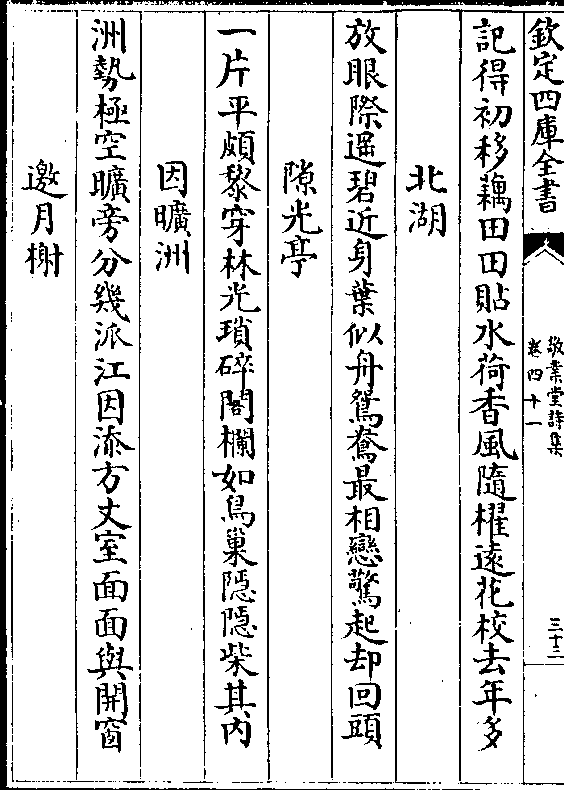 欽定四庫全書
敬業堂詩集
卷四十一
三十三
記得初移藕田田貼水荷香風隨櫂遠花校去年多
北湖
放眼際遥碧近身葉似舟鴛鴦最相戀驚起却回頭
隙光亭
一片平頗黎穿林光瑣碎閣欄如鳥巢隱隱柴其内
因曠洲
洲勢極空曠旁分幾派江因添方丈室面面與開窗
邀月榭